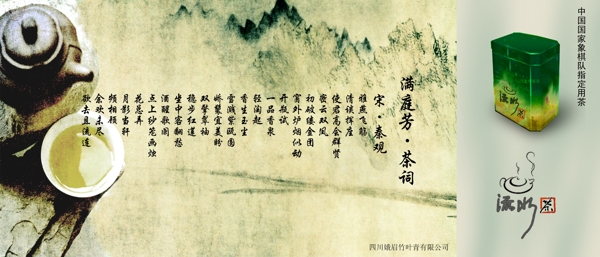 满庭芳·茶词
宋·秦观
雅燕飞觞
清谈挥座
使君高会群贤
密云双凤
初破缕金团
窗外炉烟似动
开瓶试
一品香泉
轻淘起
香生玉尘
雪溅紫瓯圆
娇鬟宜美盼
双擎翠袖
稳步红莲
坐中客翻愁
酒醒歌阑
点上纱笼画烛
花骢弄
月影当轩
频相顾
余欢未尽
欲去且流连
四川娥眉竹叶青有限公司
中国国家象棋队指定用茶
茶